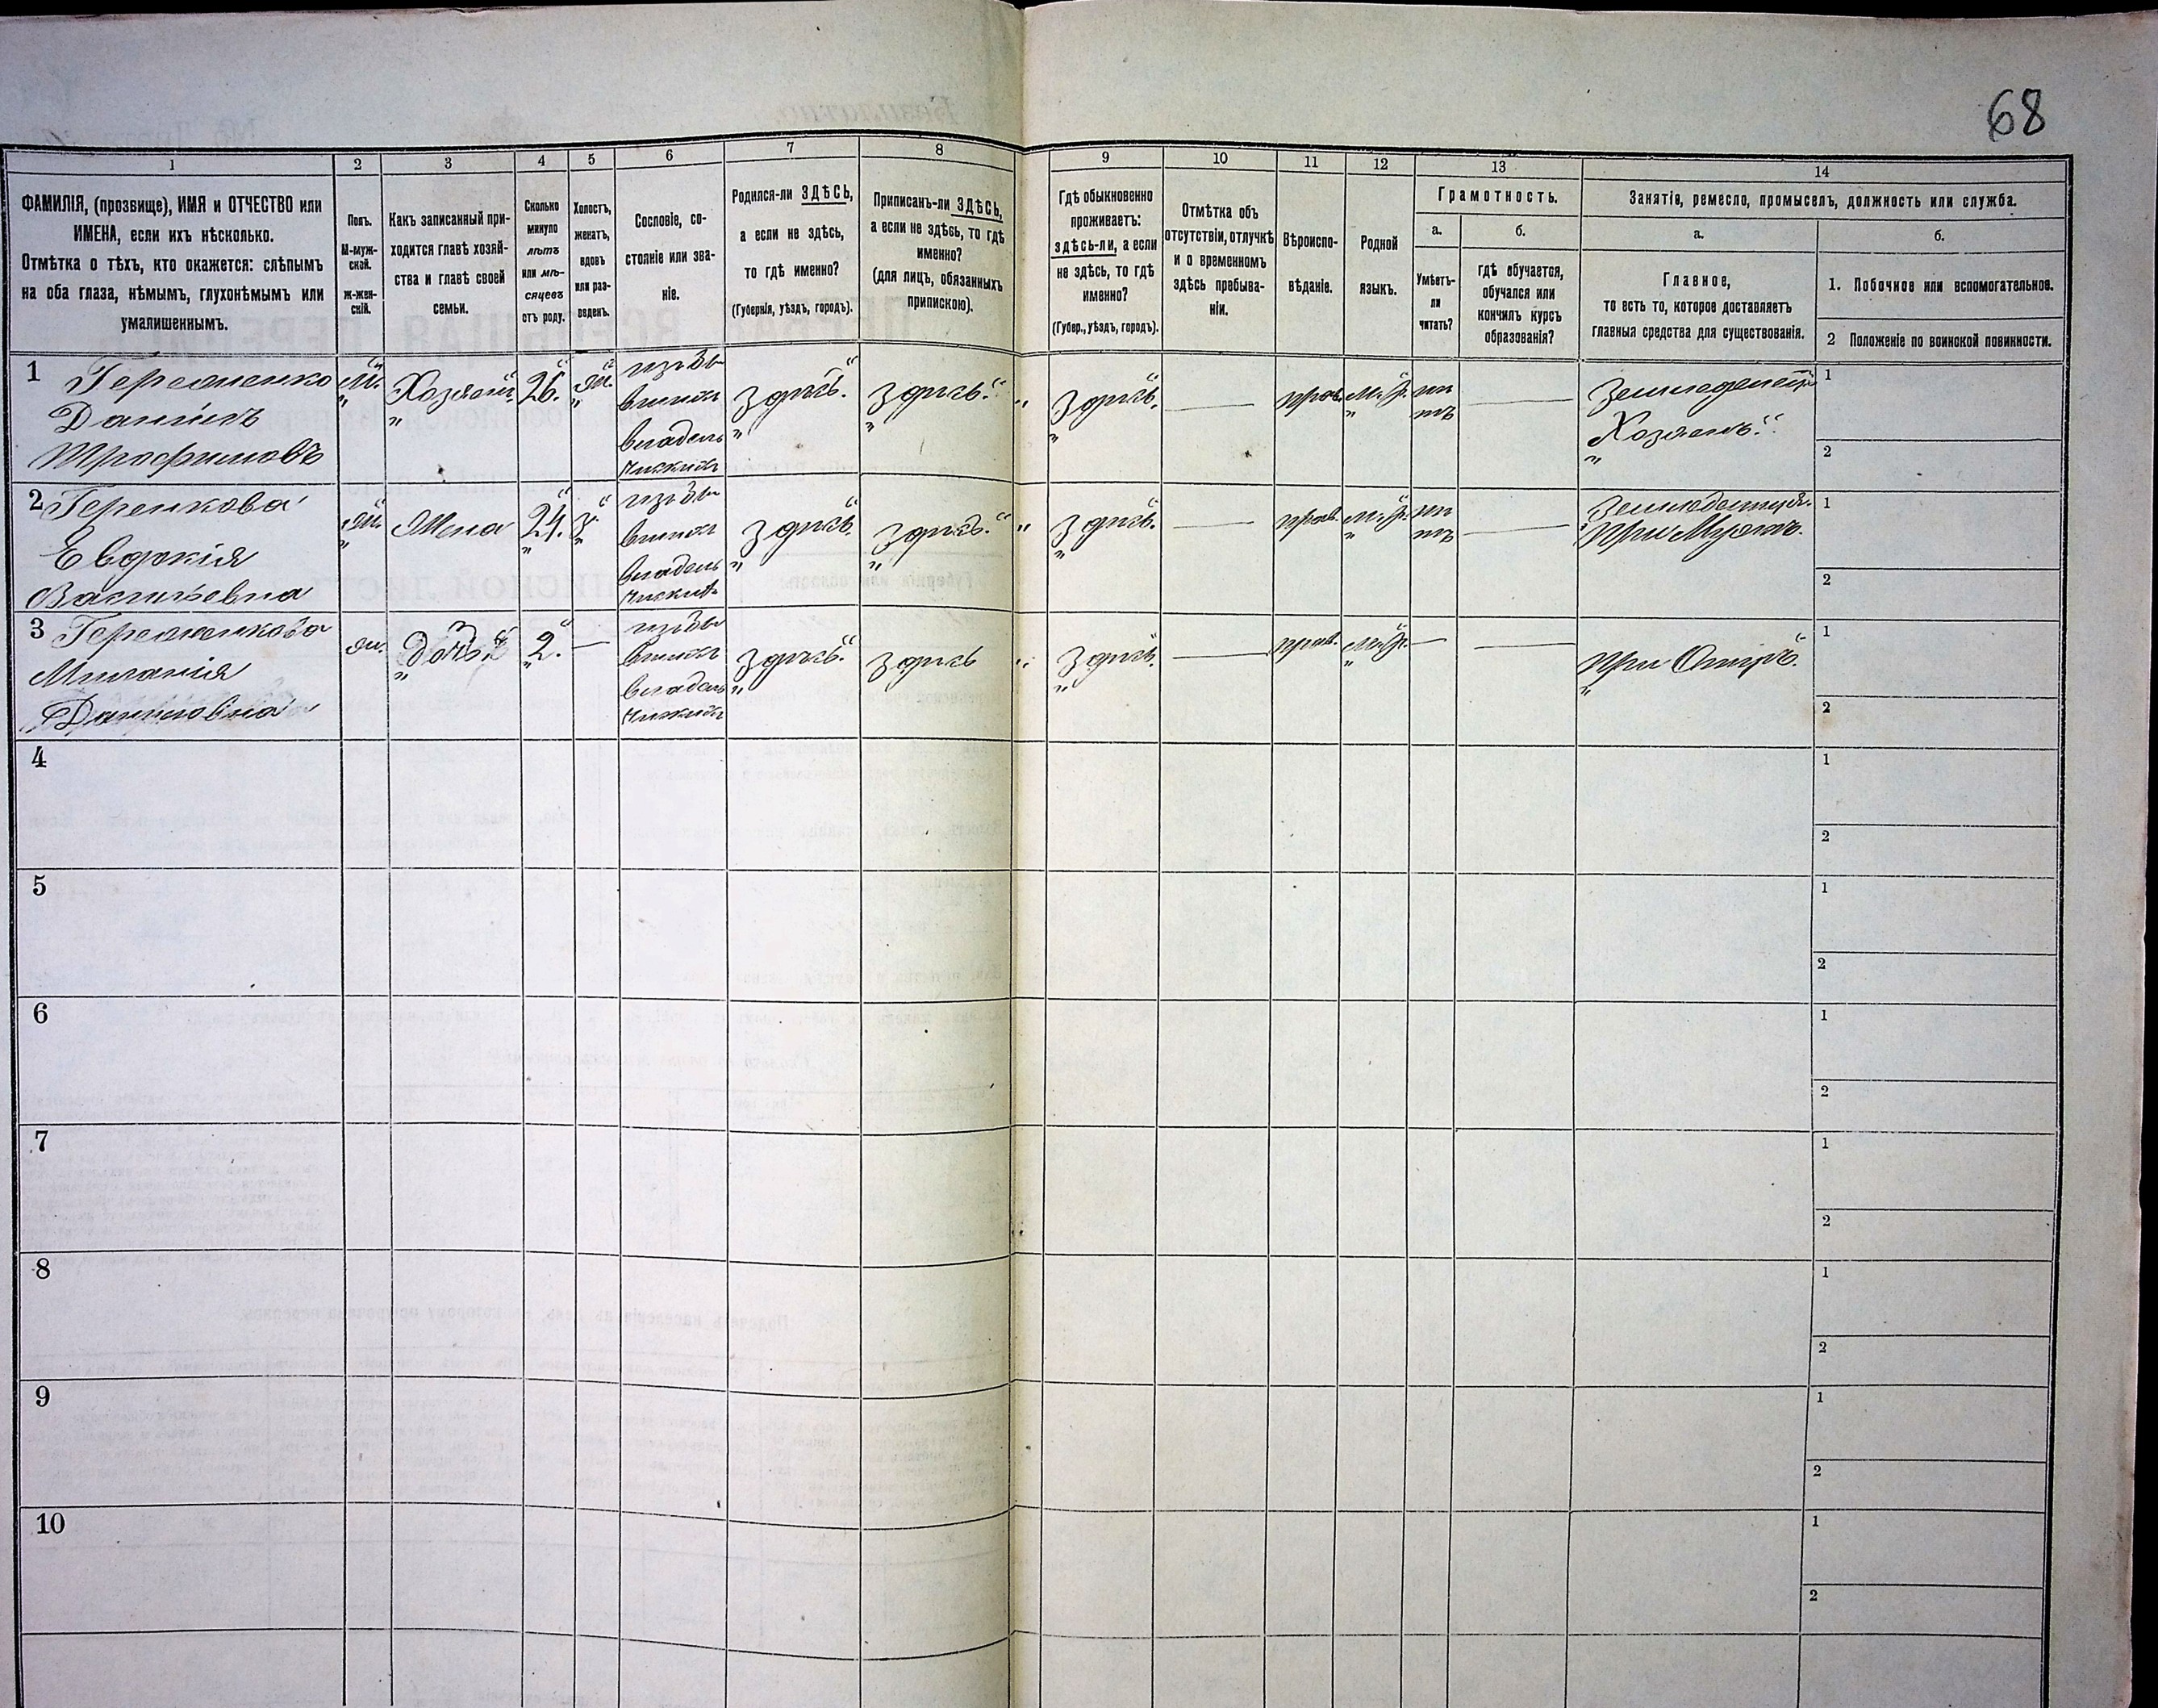 68
1
2
3
4
5
6
7
8
9
10
11
12
13
14
ФАМИЛІЯ, (прозвище), ИМЯ и ОТЧЕСТВО или
ИМЕНА, если ихъ нѣсколько.
Отмѣтка о тѣхъ, кто окажется: слѣпымъ
на оба глаза, нѣмымъ, глухонѣмымъ или
умалишеннымъ.
Полъ.
М-муж-
ской.
Ж-жен-
скій.
Какъ записанный при-
ходится главѣ хозяй-
ства и главѣ своей
семьи.
Сколько
минуло
лѣтъ
или мѣ-
сяцевъ
отъ роду.
Холостъ,
женатъ,
вдовъ
или раз-
веденъ.
Сословіе, со-
стояніе или зва-
ніе.
Родился-ли ЗДѢСЬ,
а если не здѣсь,
то гдѣ именно?
(Губернія, уѣздъ, городъ).
Приписанъ-ли ЗДѢСЬ,
а если не здѣсь, то гдѣ
именно?
(для лицъ, обязанныхъ
припискою).
Гдѣ обыкновенно
проживаетъ:
здѣсь-ли, а если
не здѣсь, то гдѣ
именно?
(Губер., уѣздъ, городъ).
Отмѣтка объ
отсутствіи, отлучкѣ
и о временномъ
здѣсь пребыва-
ніи.
Вѣроиспо-
вѣданіе.
Родной
языкъ.
Грамотность.
а.
Умѣетъ-
ли
читать?
б.
гдѣ обучается,
обучался или
кончилъ курсъ
образованія?
Занятіе, ремесло, промыселъ, должность или служба.
а.
Главное,
то есть то, которое доставляетъ
главныя средства для существованія.
б.
1. Побочное или вспомогательное.
2 Положеніе по воинской повинности.
1
Даніилъ
Трофимовъ
м.
Хозяинъ
26.
ж.
изъ б
владель
здѣсь.
здѣсь.
здѣсь.
прав.
М. Р.
нѣтъ
Хозяинъ.
1
2
2
Евдокія
Васильевна
ж.
Жена
24.
з.
изъ б
владель
здѣсь
здѣсь.
здѣсь.
прав.
М. Р.
нѣтъ
при Мужѣ.
1
2
3
Миланія
Даниловна
ж.
дочь
2.
изъ б
владель
здѣсь.
здѣсь
здѣсь.
прав.
М. Р.
при Отцѣ.
1
2
4
1
2
5
1
2
6
1
2
7
1
2
8
1
2
9
1
2
10
1
2